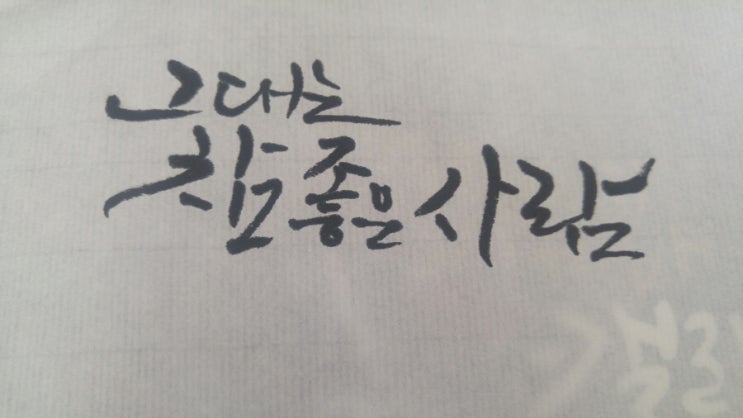 그대는
참 좋은 사람